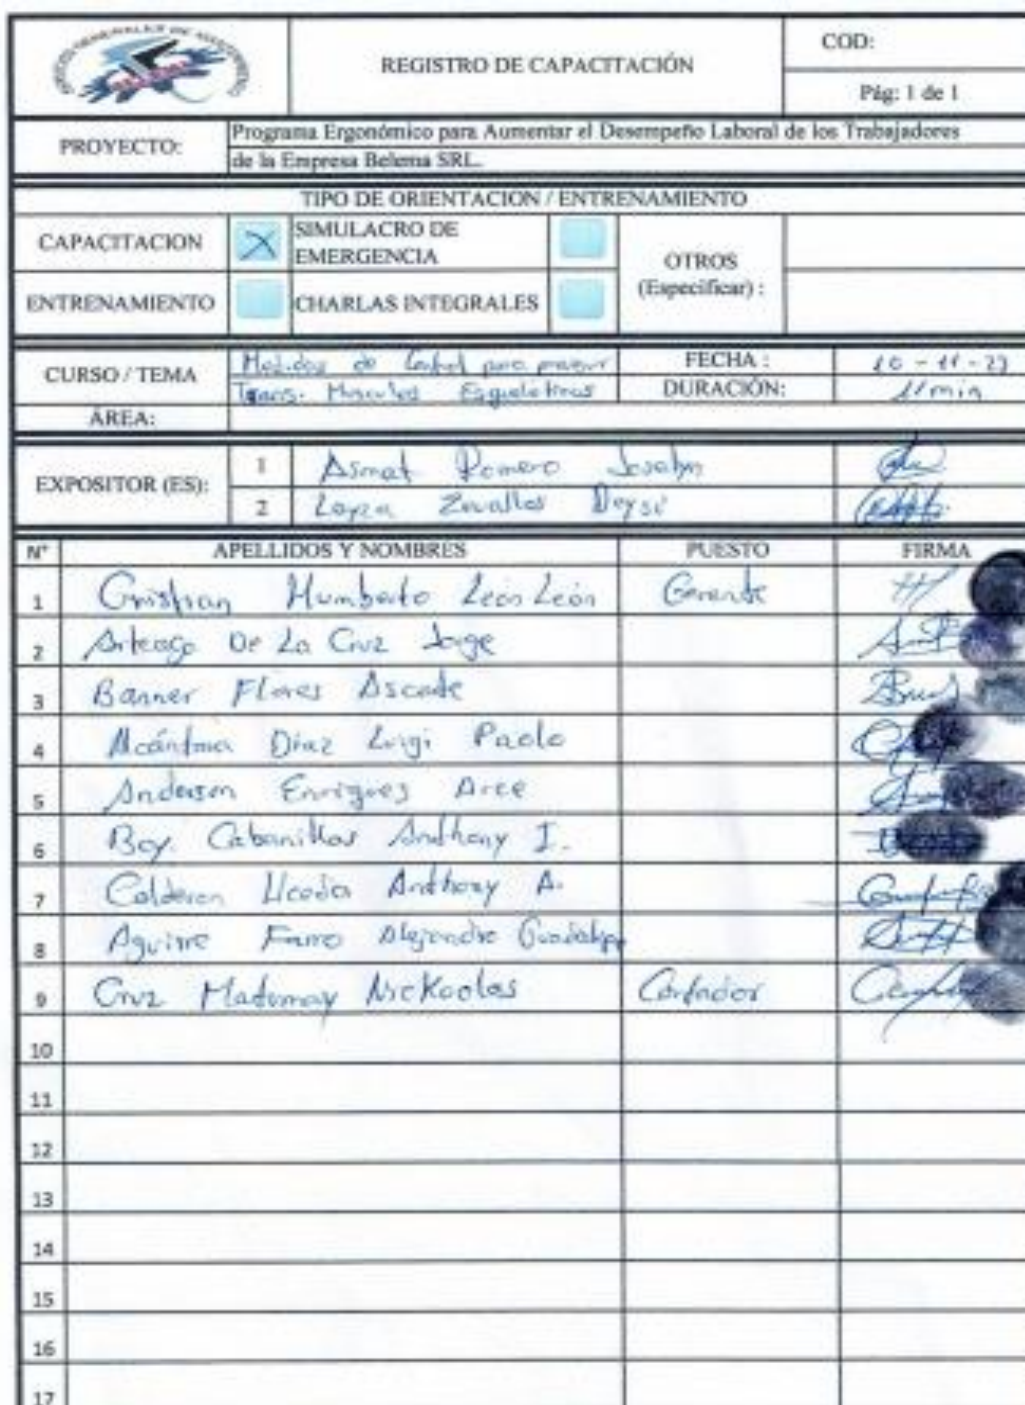 REGISTRO DE CAPACITACIÓN
COD:
Pág: 1 de 1
PROYECTO:
Programa Ergonómico para Aumentar el Desempeño Laboral de los Trabajadores
de la Empresa Belema SRL.
TIPO DE ORIENTACION / ENTRENAMIENTO
CAPACITACION X SIMULACRO DE EMERGENCIA
OTROS (Especificar) :
ENTRENAMIENTO CHARLAS INTEGRALES
CURSO / TEMA
Medidas de Control para prevenir
Trans. Musculos Esqueleticos
FECHA : 10 - 11 - 23
DURACIÓN: 11 min
ÁREA:
EXPOSITOR (ES):
1 Asmat Romero Joselyn
2 Loyza Zevallos Deysi
N° APELLIDOS Y NOMBRES PUESTO FIRMA
1 Cristhian Humberto León León Gerente
2 Arteaga De La Cruz Jorge
3 Banner Flores Ascate
4 Alcántara Díaz Luigi Paolo
5 Anderson Enriquez Arce
6 Boy Cabanillas Anthony I.
7 Calderon Anthony A.
8 Aguirre Farro Alejandro Guadalupe
9 Cruz Nickoolas Contador
10
11
12
13
14
15
16
17